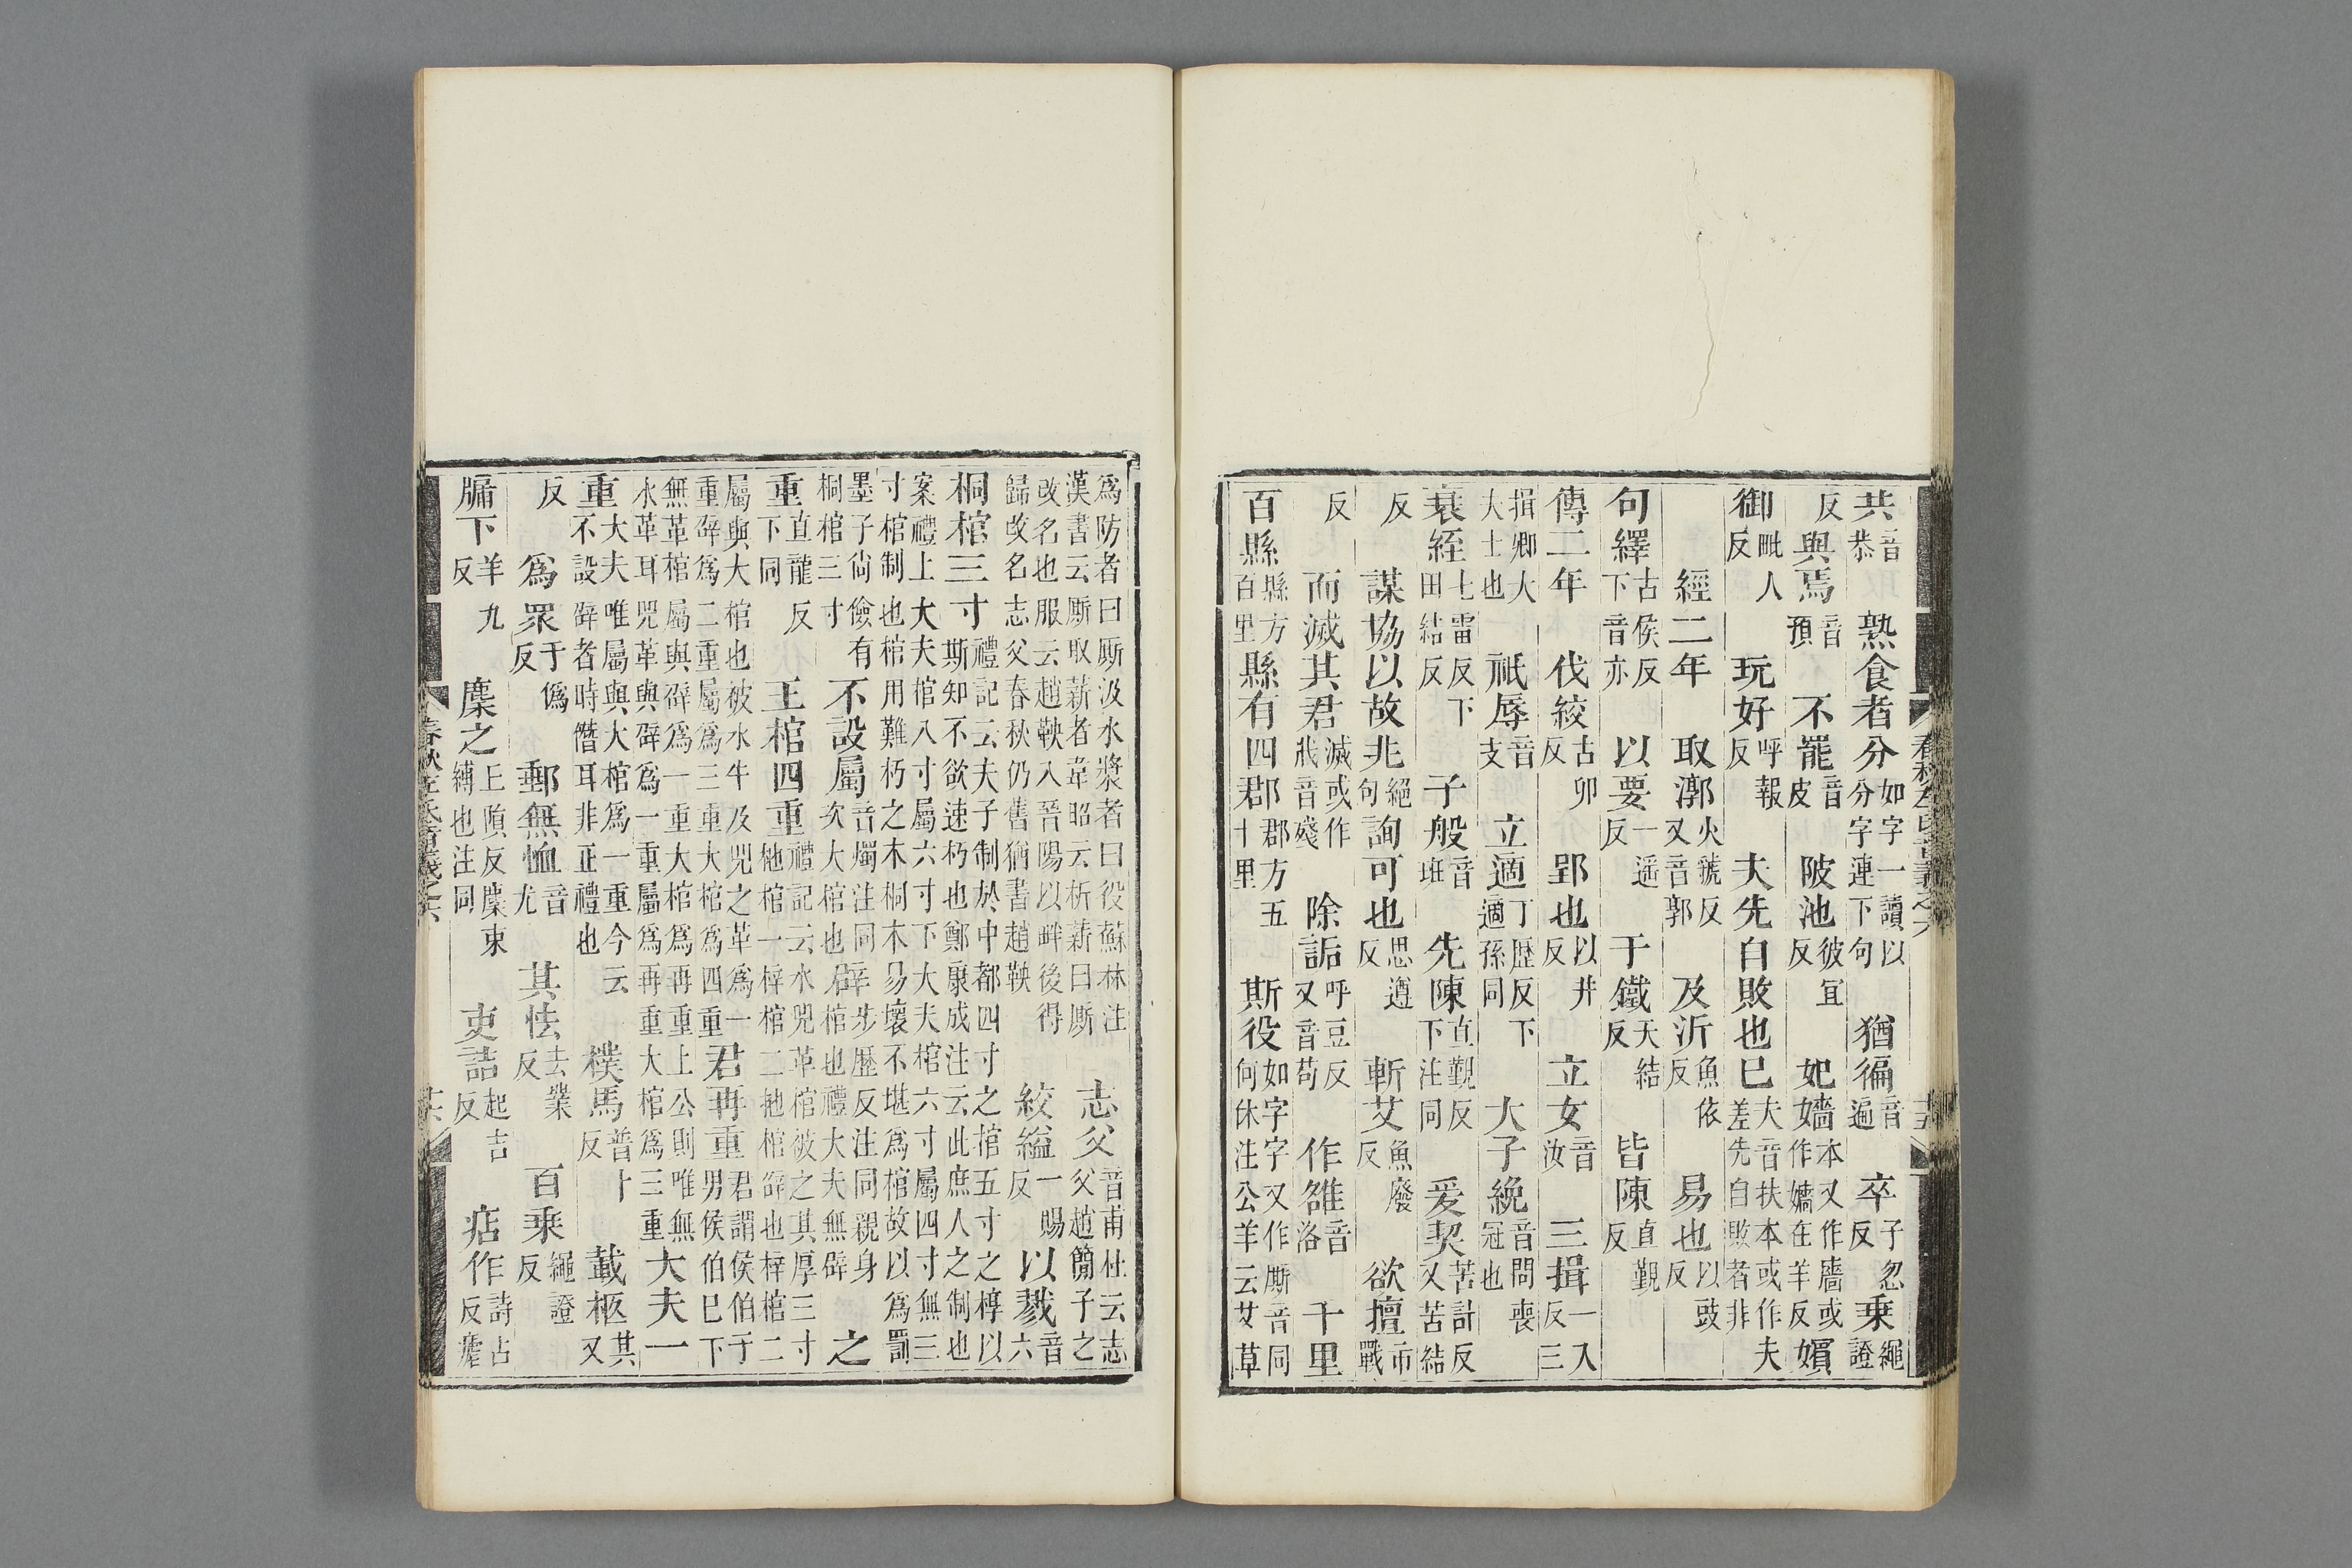 共音恭 熟食者分如字一讀以分字連下句 猶徧音遍 卒子忽反 乘繩證
反 與焉音預 不罷音皮 陂池彼宜反 妃嬙本又作牆或作嬙在羊反 嬪
御毗人反 玩好呼報反 夫先自敗也已夫音扶本或作夫差先自敗者非
經二年 取漷火虢反又音郭 及沂魚依反 易也以豉反
句繹古侯反下音亦 以要一遥反 于鐵天結反 皆陳直覲反
傳二年 伐絞古卯反 郢也以井反 立女音汝 三揖一入反三
揖卿大大士也 祇辱音支 立適丁歷反下適孫同 大子絻音問喪冠也
衰絰七雷反下田結反 子般音班 先陳直覲反下注同 爰契苦計反又苦結
反 謀協以故兆絕句 詢可也思遵反 斬艾魚廢反 欲擅市戰
反 而滅其君滅或作戕音殘 除詬呼豆反又音苟 作雒音洛 千里
百縣縣方百里 縣有四郡郡方五十里 斯役如字字又作廝音同何休注公羊云艾草
春秋左氏音義之六 十五
為防者曰廝汲水漿者曰役蘇林注漢書云廝取薪者韋昭云析薪曰廝 志父音甫杜云志父趙簡子之
改名也服云趙鞅入晉陽以畔後得歸改名志父春秋仍舊猶書趙鞅 絞縊一賜反 以戮音六
桐棺三寸禮記云夫子制於中都四寸之棺五寸之椁以斯知不欲速朽也鄭康成注云此庶人之制也
案禮上大夫棺八寸屬六寸下大夫棺六寸屬四寸無三寸棺制也棺用難朽之木桐木易壞不堪為棺故以為罰
墨子尚儉有桐棺三寸 不設屬音燭注同辟步歷反注同親身次大棺也棺也禮大夫無辟 之
重直龍反下同 王棺四重禮記云水兕革棺被之其厚三寸杝棺一梓棺二杝棺辟也梓棺二
屬與大棺也被水牛及兕之革為一重辟為二重屬為三重大棺為四重 君再重君謂侯伯子男侯伯已下
無革棺屬與辟為一重大棺為再重上公則唯無水革耳兕革與辟為一重屬為再重大棺為三重 大夫一
重大夫唯屬與大棺為一重今云不設辟者時僭耳非正禮也 樸馬普卜反 載柩其又
反 為眾于偽反 郵無恤音尤 其怯去業反 百乘繩證反
牖下羊九反 麇之丘隕反麇束縛也注同 吏詰起吉反 痁作詩占反瘧
春秋左氏音義之六